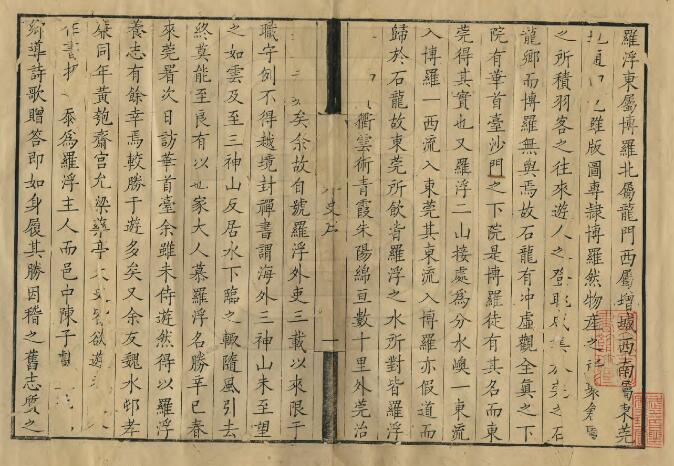 羅浮東屬博羅北屬龍門西屬增城西南屬東莞
雖版圖專隸博羅然物產之
之所積羽客之往來遊人之登眺 之石
龍鄉而博羅無與焉故石龍有冲虛觀全真之下
院有華首臺沙門之下院是博羅徒有其名而東
莞得其實也又羅浮二山接處為分水㠗一東流
入博羅一西流入東莞其東流入博羅亦假道而
歸於石龍故東莞所飲皆羅浮之水所對皆羅浮
衢雲術青霞朱陽綿亘數十里外莞治
史
一
矣余故自號羅浮外吏三載以來限于
職守例不得越境封禪書謂海外三神山未至望
之如雲及至三神山反居水下臨之輒隨風引去
終莫能至良有以也家大人慕羅浮名勝辛巳春
來莞署次日訪華首臺余雖未侍遊然得以羅浮
養志有餘幸焉較勝于遊多矣又余友魏水邨孝
廉同年黃匏齋宮允梁藥亭 欲遊
作書 為羅浮主人而邑中陳子
鄉導詩歌贈答即如身履其勝因稽之舊志質之